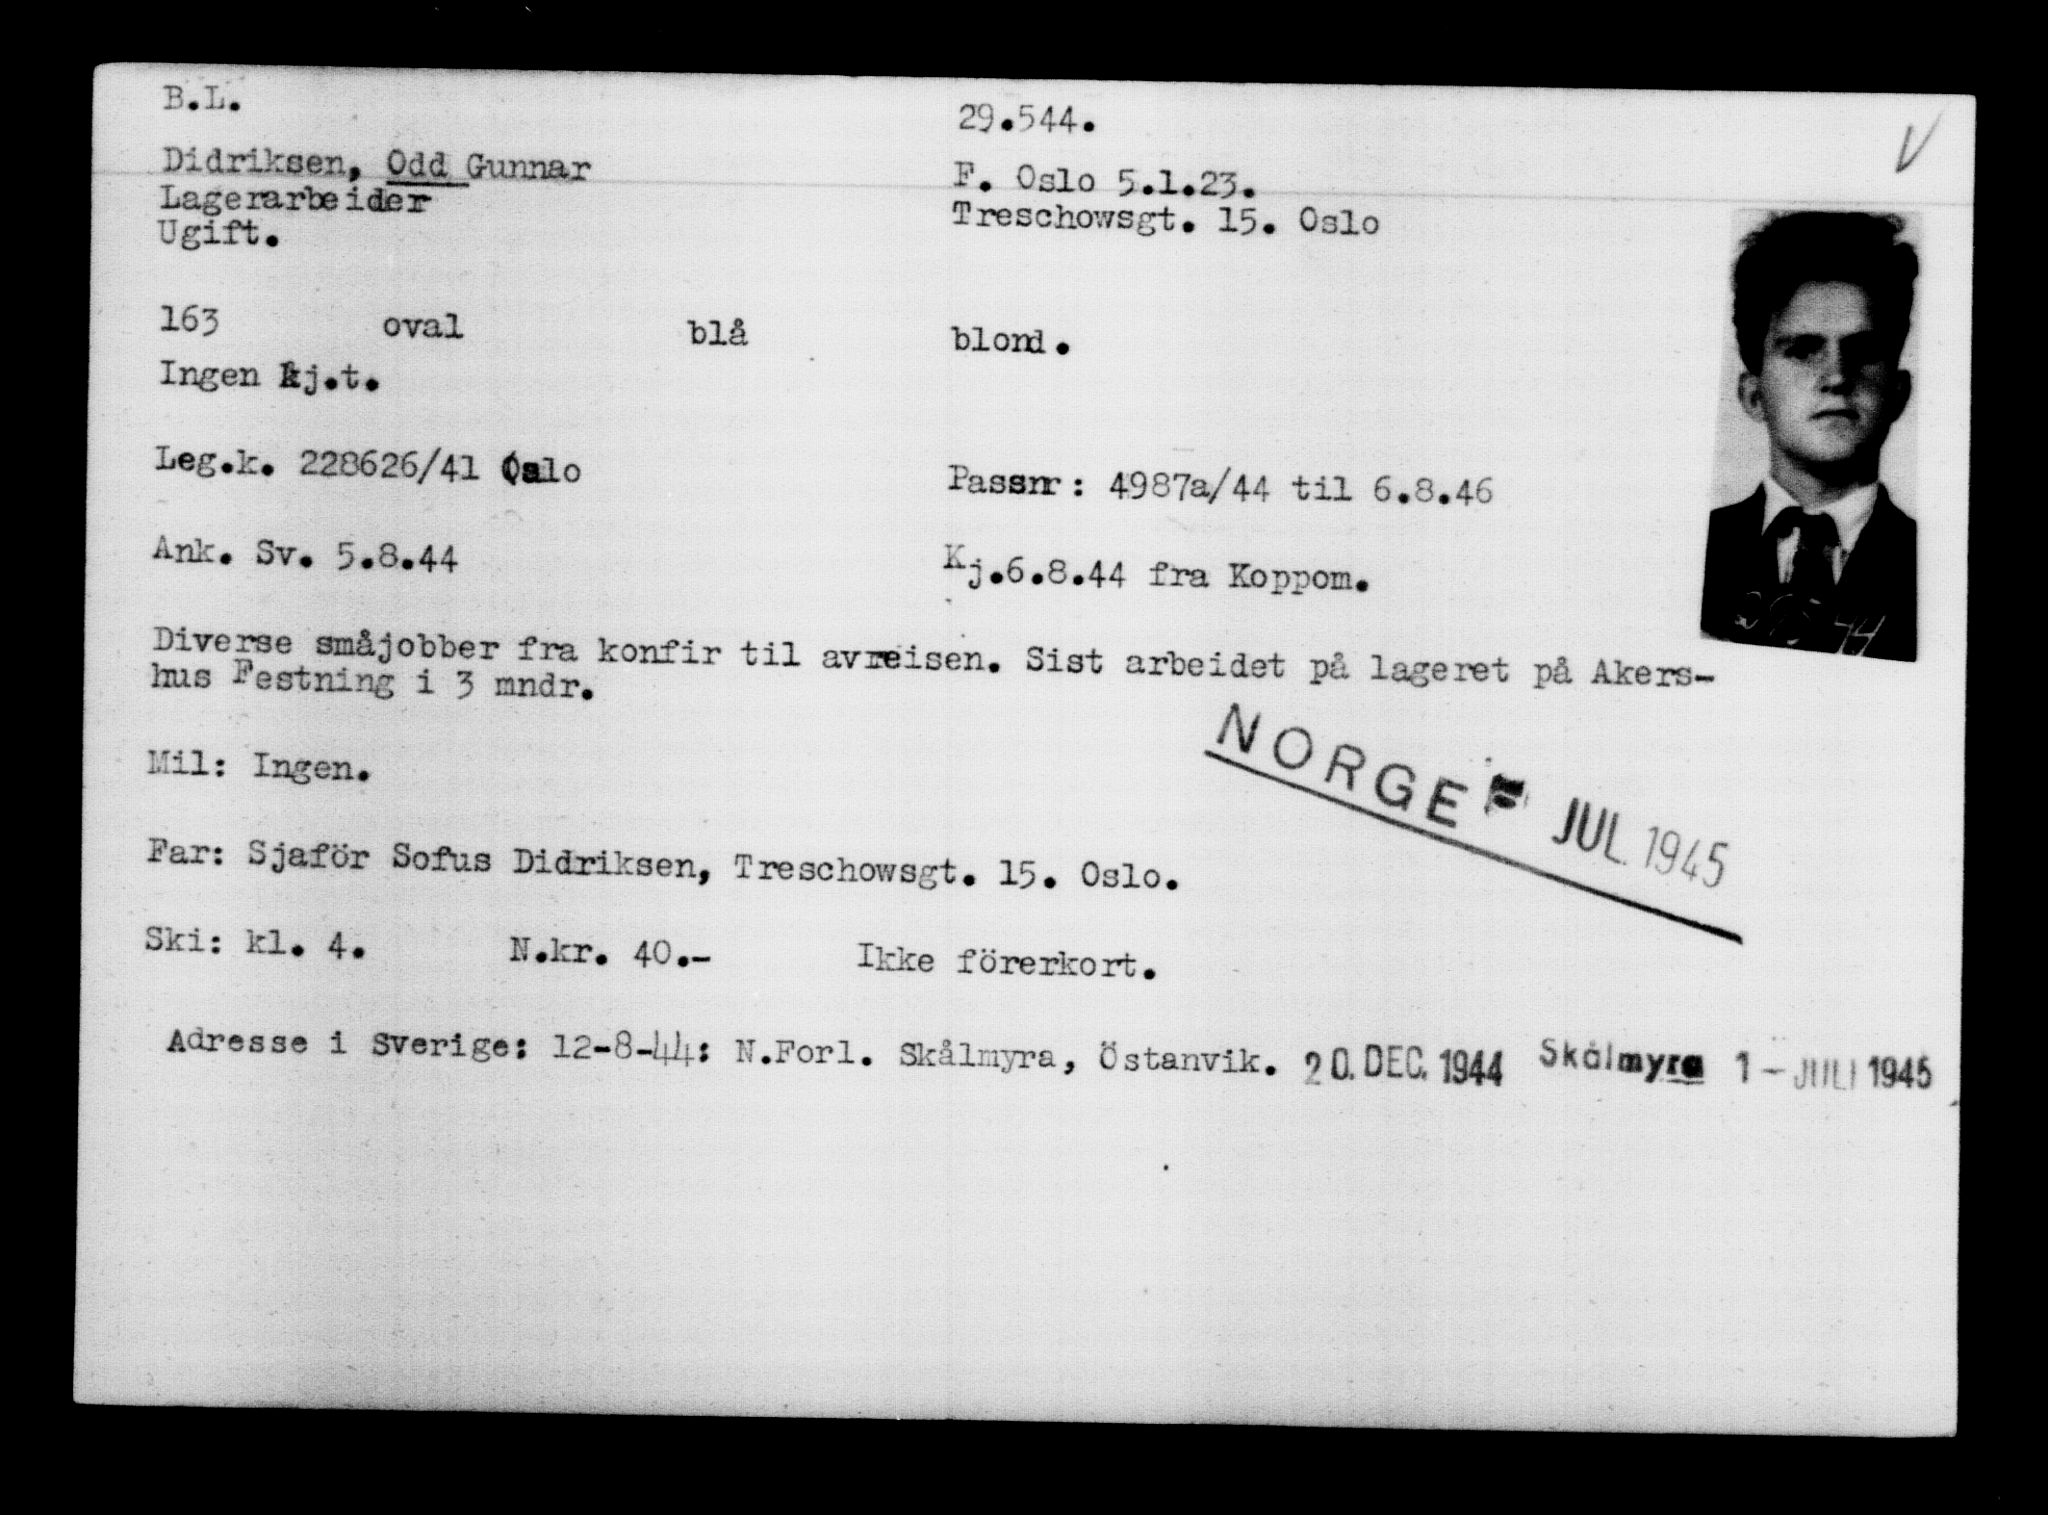 B.L.
29.544.
V
Didriksen, Odd Gunnar
F. Oslo 5.1.23.
Lagerarbeider
Treschowsgt. 15. Oslo
Ugift.
163 oval blå blond.
Ingen kj.t.
Leg.k. 228626/41 Oslo
Passnr: 4987a/44 til 6.8.46
Ank. Sv. 5.8.44
Kj.6.8.44 fra Koppom.
Diverse småjobber fra konfir til avreisen. Sist arbeidet på lageret på Akers-
hus Festning i 3 mndr.
Mil: Ingen.
NORGE JUL. 1945
Far: Sjaför Sofus Didriksen, Treschowsgt. 15. Oslo.
Ski: kl. 4. N.kr. 40.- Ikke förerkort.
Adresse i Sverige: 12-8-44: N.Forl. Skålmyra, Östanvik. 20. DEC. 1944 Skålmyra 1 - JULI 1945